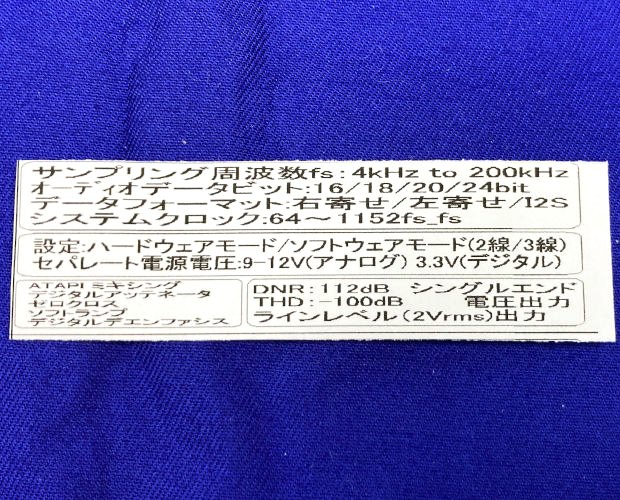 サンプリング周波数fs:4kHz to 200kHz
オーディオデータビット:16/18/20/24bit
データフォーマット:右寄せ/左寄せ/I2S
システムクロック:64～1152fs_fs
設定:ハードウェアモード/ソフトウェアモード(2線/3線)
セパレート電源電圧:9-12V(アナログ) 3.3V(デジタル)
ATAPIミキシング
デジタルアッテネータ
ゼロクロス
ソフトランプ
デジタルデエンファシス
DNR:112dB シングルエンド
THD:-100dB 電圧出力
ラインレベル(2Vrms)出力